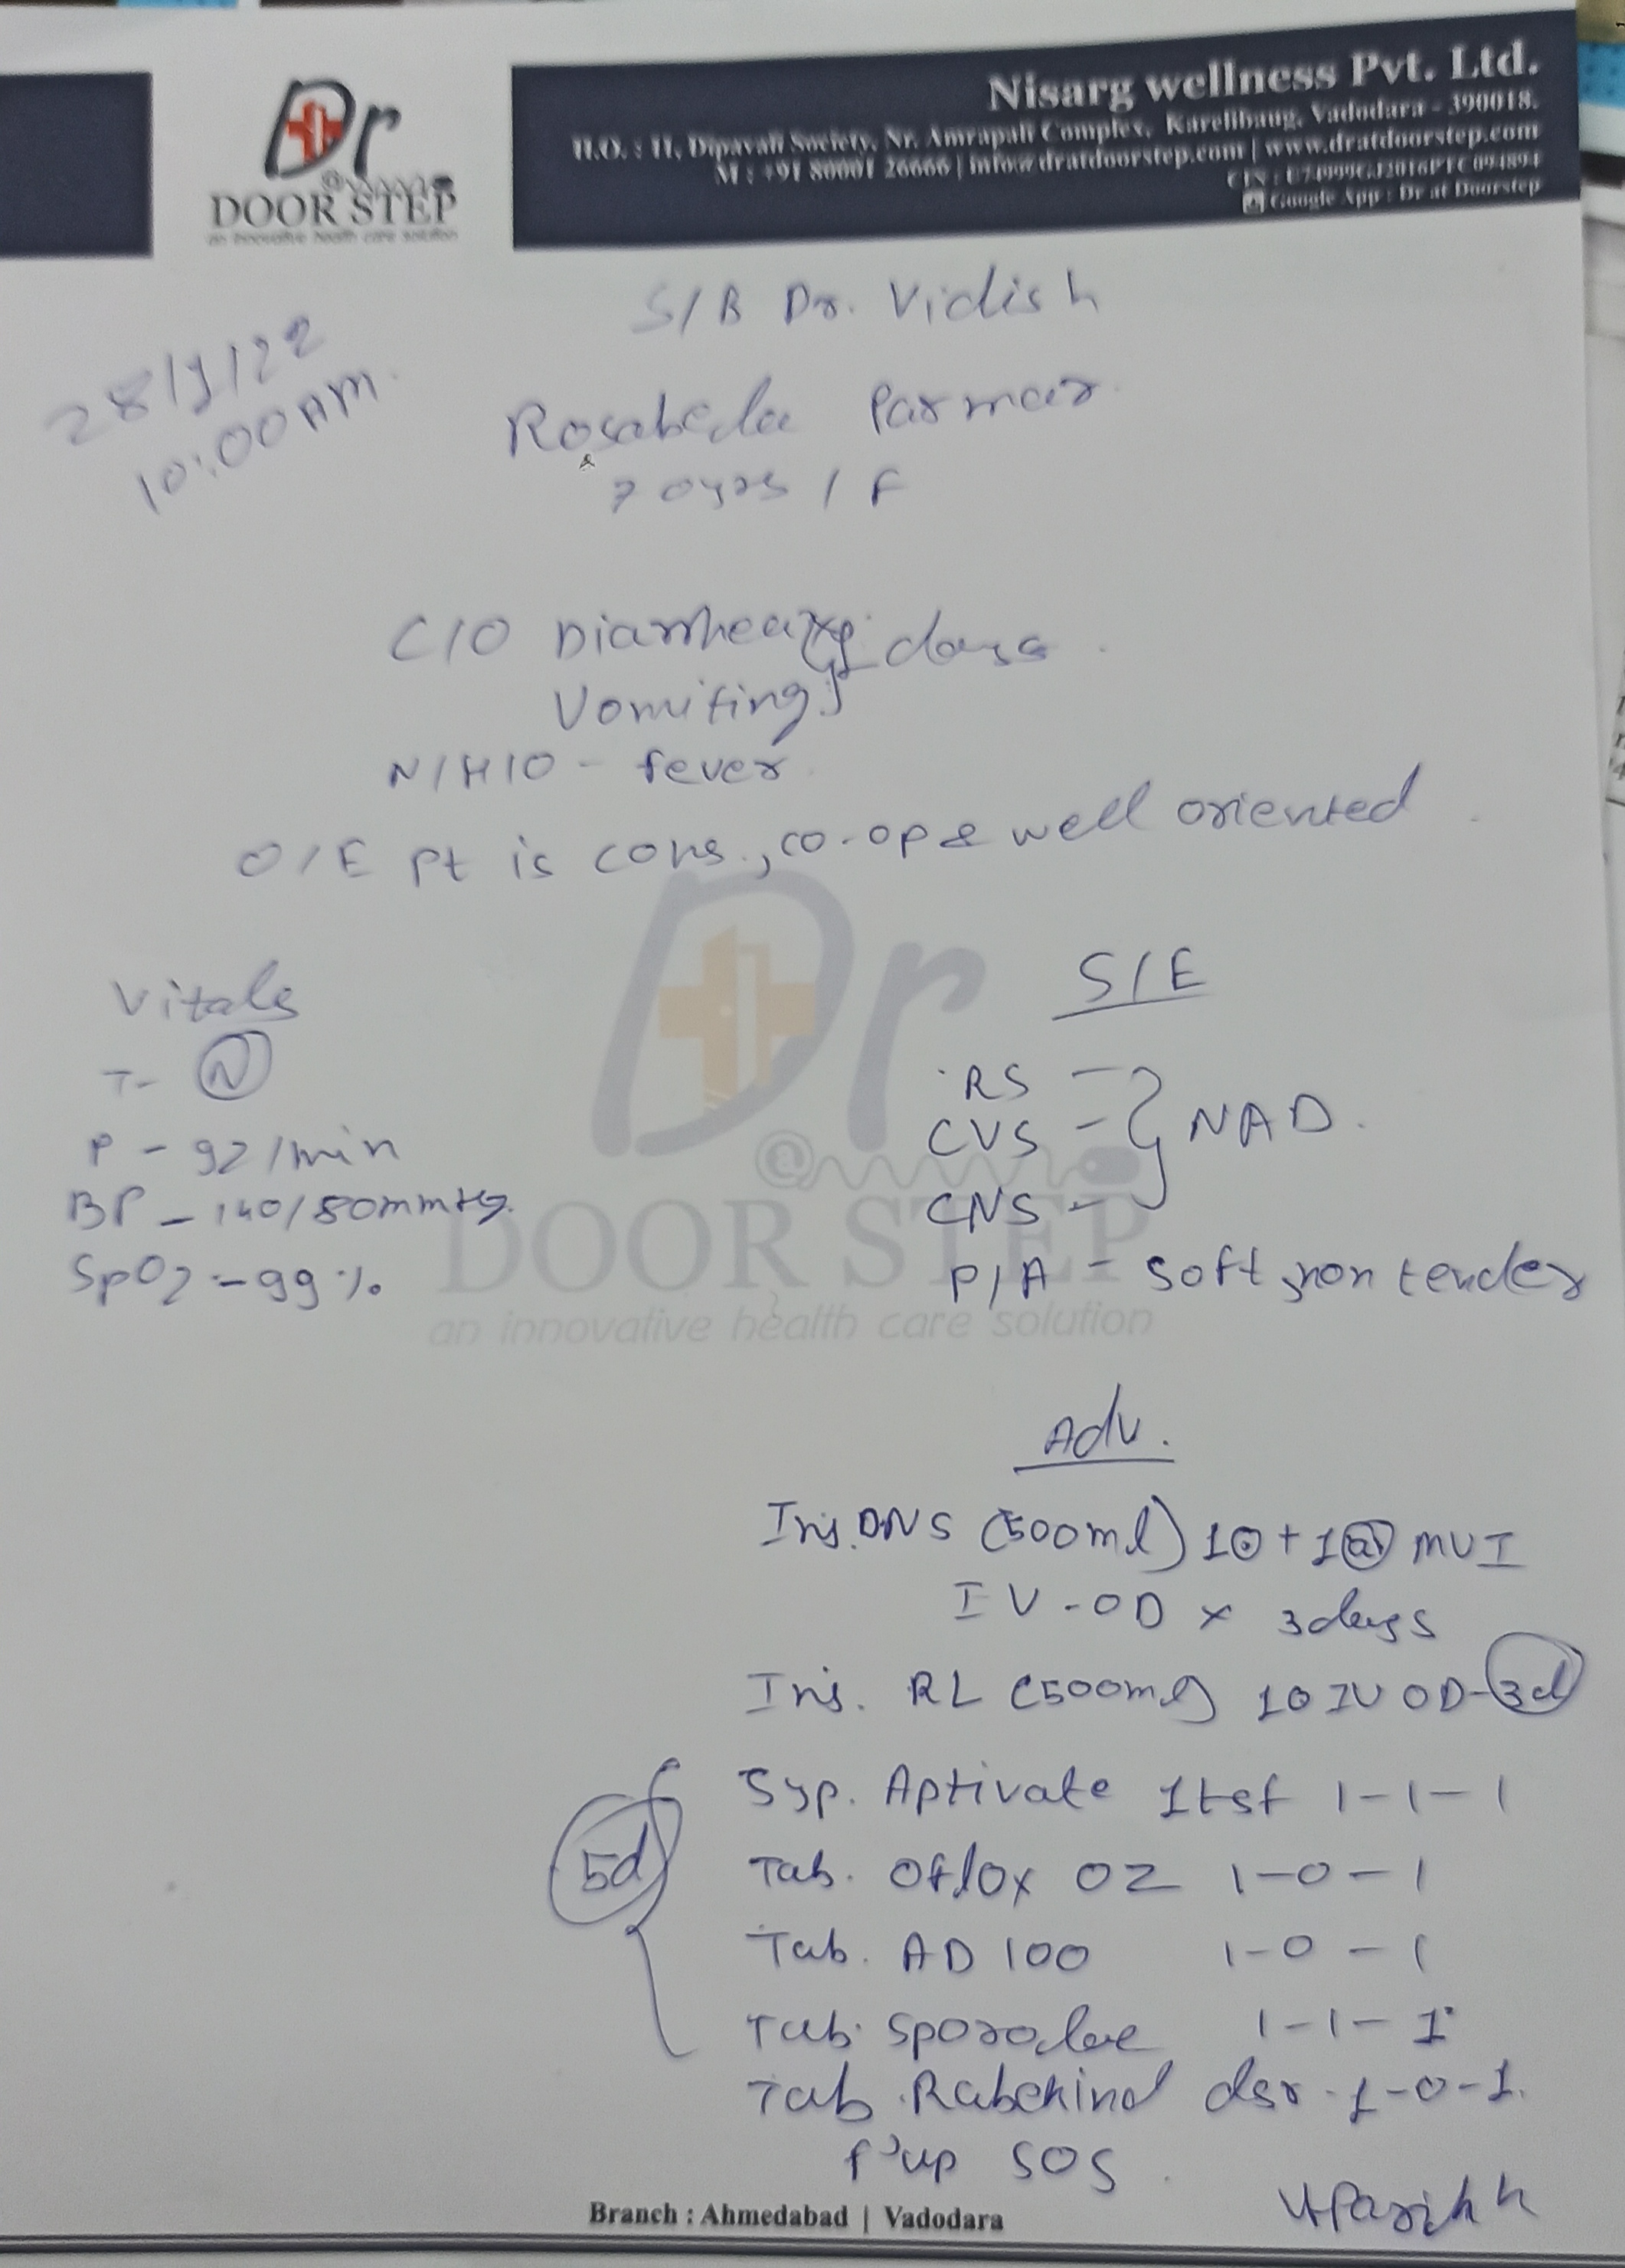 Dr
@
DOOR STEP
an innovative health care solution
Nisarg wellness Pvt. Ltd.
H.O. : 11, Dipavali Society, Nr. Amrapali Complex, Karelibaug, Vadodara - 390018.
M : +91 80001 26666 | info@dratdoorstep.com | www.dratdoorstep.com
CIN : U74999GJ2016PTC094894
Google App : Dr at Doorstep
S/B Dr. Vidish
28/9/22
10:00 AM.
Parmar
70yrs / F
C/O Diarrhea days.
Vomiting
N/H/O - fever
O/E pt is cons., co-op & well oriented.
Vitals
T- N
P - 92/min
BP - 140/80mmHg.
SpO2 - 99%
S/E
RS -
CVS - } NAD.
CNS -
P/A - Soft, non tender
Dr
@
DOOR STEP
an innovative health care solution
Adv.
Inj. DNS (500ml) 10 + 1 MVI
IV - OD x 3days
Inj. RL (500ml) 10 IV OD - 3d
5d
Syp. Aptivate 1tsf 1-1-1
Tab. Oflox OZ 1-0-1
Tab. AD 100 1-0-1
Tab. Sporolac 1-1-1
Tab. Rabekind dsr - 1-0-1.
f'up SOS.
Parikh
Branch : Ahmedabad | Vadodara